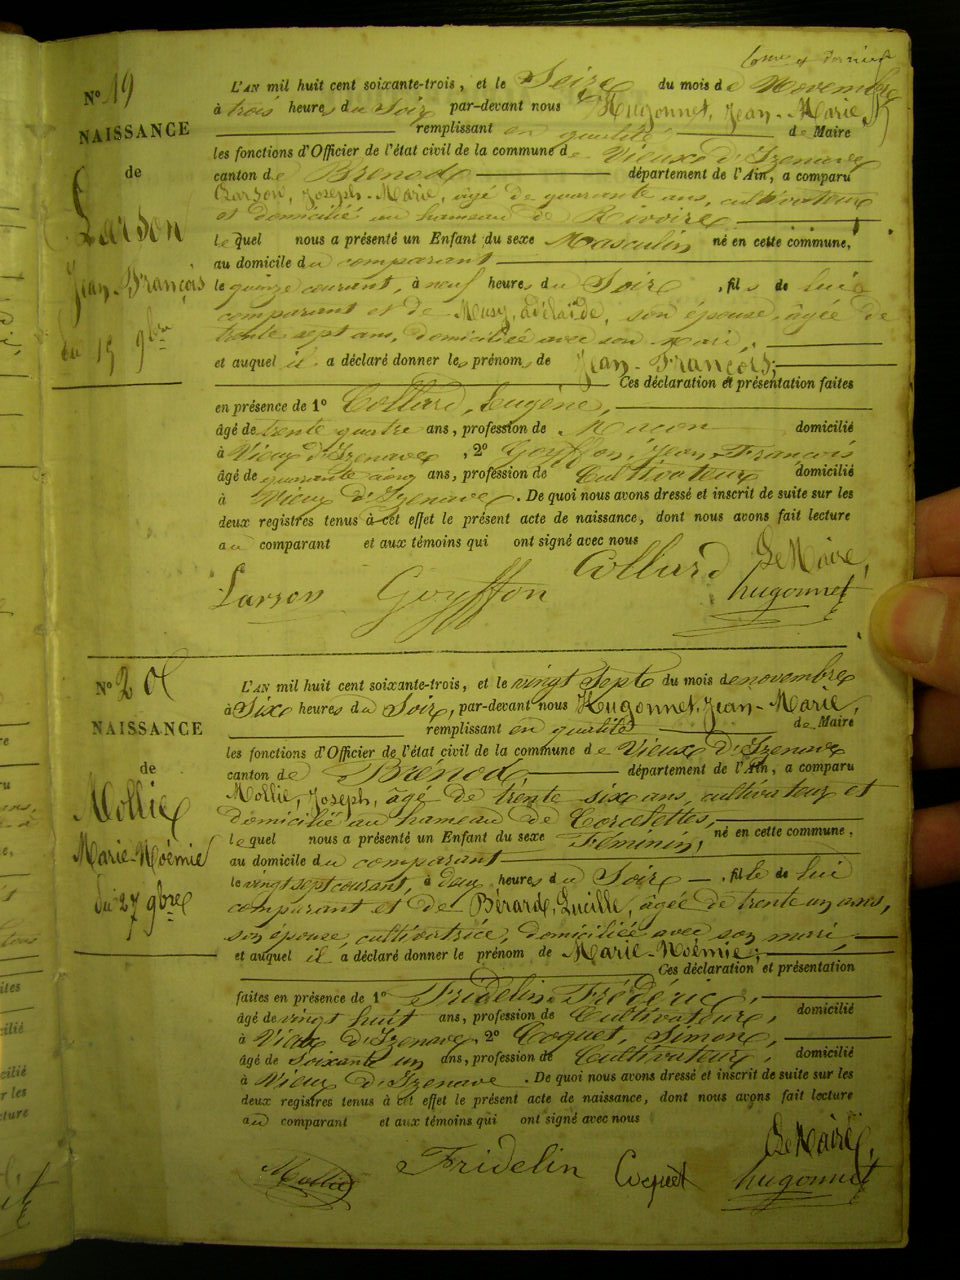 N° 19
NAISSANCE
de
Larson
Jean-François
du 15 9bre
L'AN mil huit cent soixante-trois, et le Seize du mois de Novembre
à trois heures du Soir par-devant nous Hugonnet, Jean-Marie
remplissant en qualité de Maire
les fonctions d'Officier de l'état civil de la commune de Vieux d'Izenave
canton de Brénod département de l'Ain, a comparu
Larson, Joseph-Marie, âgé de quarante ans, cultivateur
et domicilié au hameau de
lequel nous a présenté un Enfant du sexe Masculin né en cette commune,
au domicile du comparant
le quinze courant, à neuf heures du Soir, fils de lui
comparant et de Musy, Adélaïde, son épouse, âgée de
trente sept ans, domiciliée avec son mari,
et auquel il a déclaré donner les prénoms de Jean-François;
Ces déclaration et présentation faites
en présence de 1° Collard, Eugène,
âgé de trente quatre ans, profession de Maçon domicilié
à Vieux d'Izenave, 2° Goyffon, Jean-François
âgé de quarante cinq ans, profession de Cultivateur domicilié
à Vieux d'Izenave. De quoi nous avons dressé et inscrit de suite sur les
deux registres tenus à cet effet le présent acte de naissance, dont nous avons fait lecture
au comparant et aux témoins qui ont signé avec nous
Collard Le Maire,
Larson Goyffon hugonnet
N° 20
NAISSANCE
de
Mollie
Marie-Noémie
du 27 9bre
L'AN mil huit cent soixante-trois, et le vingt Sept du mois de novembre
à Six heures du Soir, par-devant nous Hugonnet, Jean-Marie,
remplissant en qualité de Maire
les fonctions d'Officier de l'état civil de la commune de Vieux d'Izenave
canton de Brénod, département de l'Ain, a comparu
Mollie, Joseph, âgé de trente six ans, cultivateur et
domicilié au hameau de Corcelettes,
lequel nous a présenté un Enfant du sexe Féminin, né en cette commune,
au domicile du comparant
le vingt sept courant, à deux heures du Soir, fille de lui
comparant et de Bérard, Lucille, âgée de trente un ans,
son épouse, cultivatrice, domiciliée avec son mari,
et auquel il a déclaré donner le prénom de Marie-Noémie;
Ces déclaration et présentation
faites en présence de 1° Fridelin Frédéric,
âgé de vingt huit ans, profession de Cultivateur, domicilié
à Vieux d'Izenave, 2° Coquet, Simon,
âgé de soixante un ans, profession de Cultivateur, domicilié
à Vieux d'Izenave. De quoi nous avons dressé et inscrit de suite sur les
deux registres tenus à cet effet le présent acte de naissance, dont nous avons fait lecture
au comparant et aux témoins qui ont signé avec nous
Le Maire,
Mollie Fridelin Coquet hugonnet